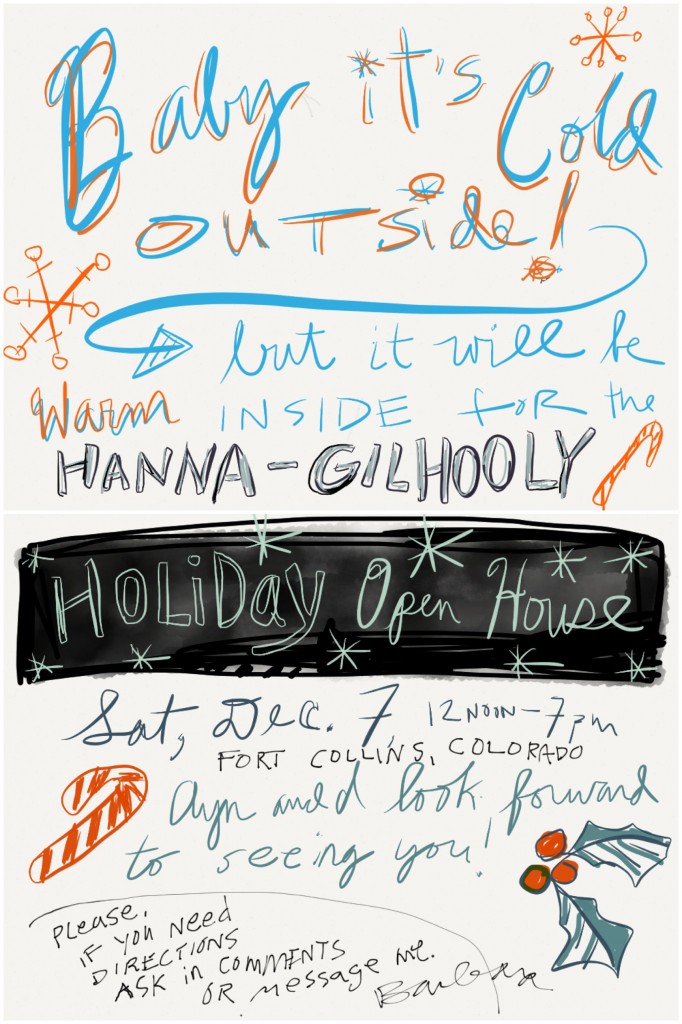 Baby it's Cold
outside!
but it will be
Warm INSIDE for the
HANNA-GILHOOLY
HOLiDay Open House
Sat, Dec. 7, 12 NOON-7pm
FORT COLLINS, COLORADO
look forward
to seeing you!
PLease,
IF YOU NEED
DIRECTIONS
ASK in COMMENTS
OR message me.
Barbara